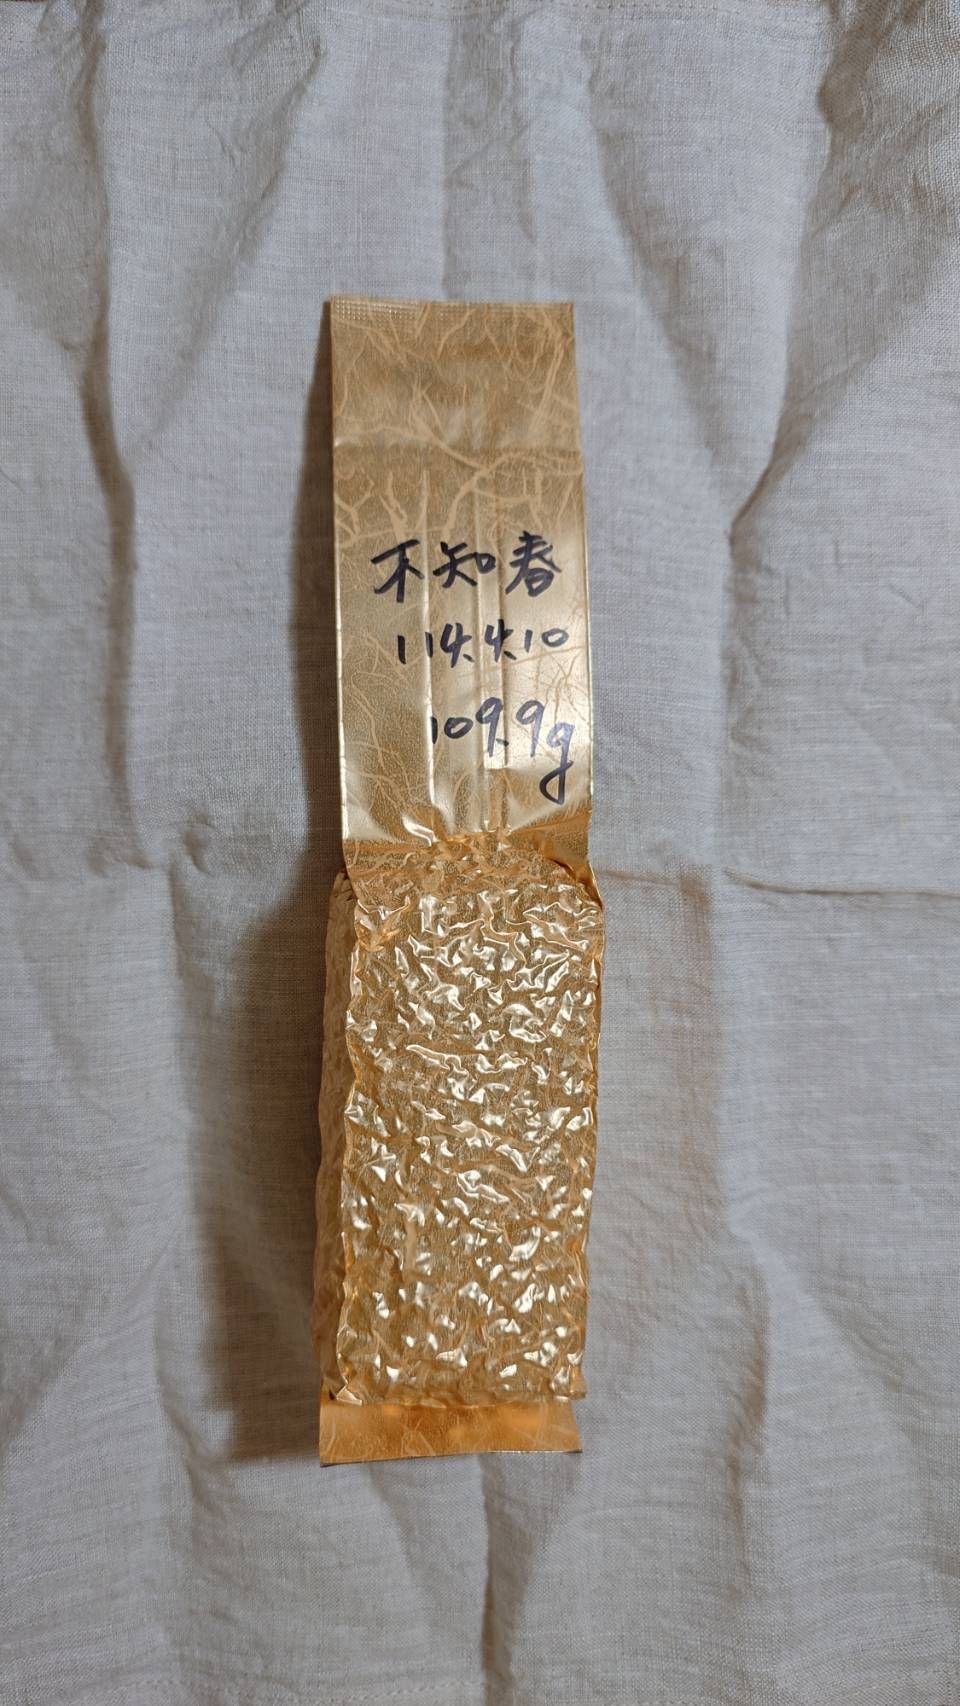 不知春
114.4.10
109.9g